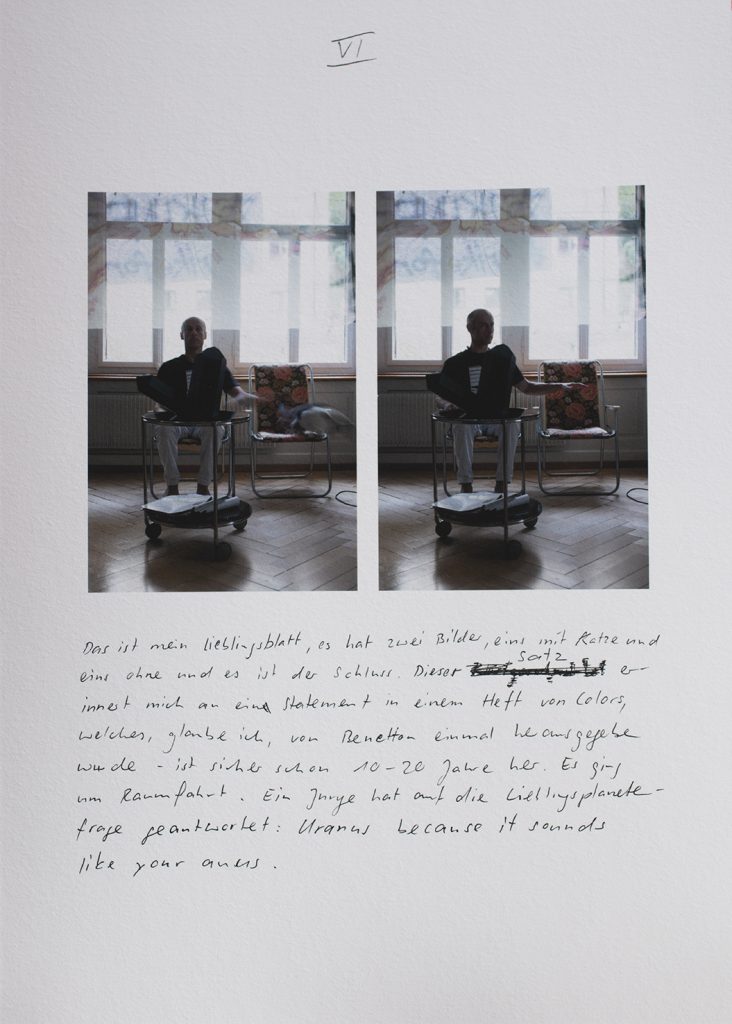 VI
Das ist mein Lieblingsblatt, es hat zwei Bilder, eins mit Katze und
eins ohne und es ist der Schluss. Dieser Satz er-
innert mich an ein Statement in einem Heft von Colors,
welches, glaube ich, von Benetton einmal herausgegebe
wurde – ist sicher schon 10–20 Jahre her. Es ging
um Raumfahrt. Ein Junge hat auf die Lieblingsplanete-
frage geantwortet: Uranus because it sounds
like your anus.